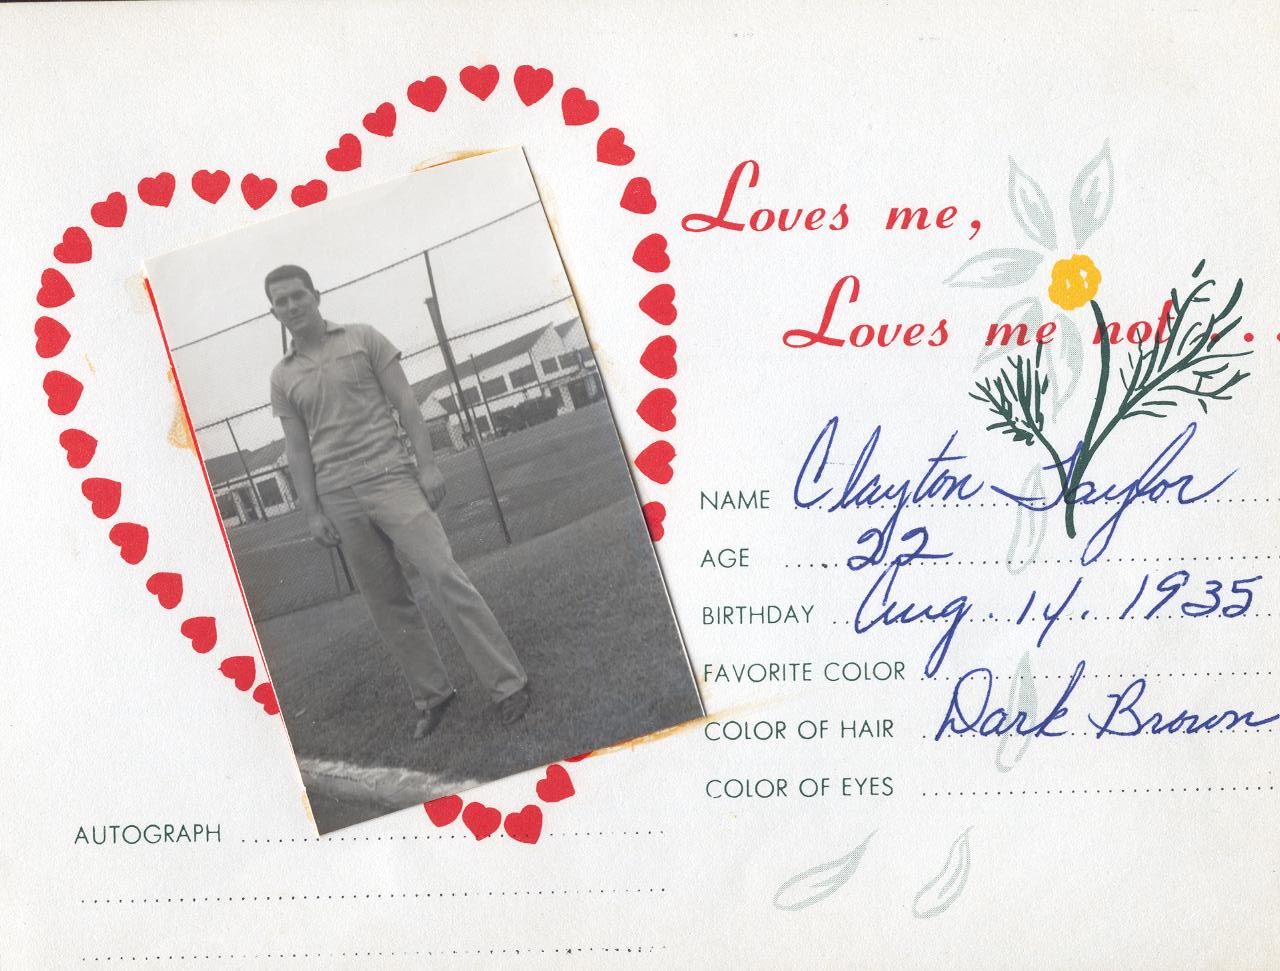 Loves me,
Loves me not . . .
NAME Clayton Taylor
AGE 22
BIRTHDAY Aug. 14. 1935
FAVORITE COLOR
COLOR OF HAIR Dark Brown
COLOR OF EYES
AUTOGRAPH